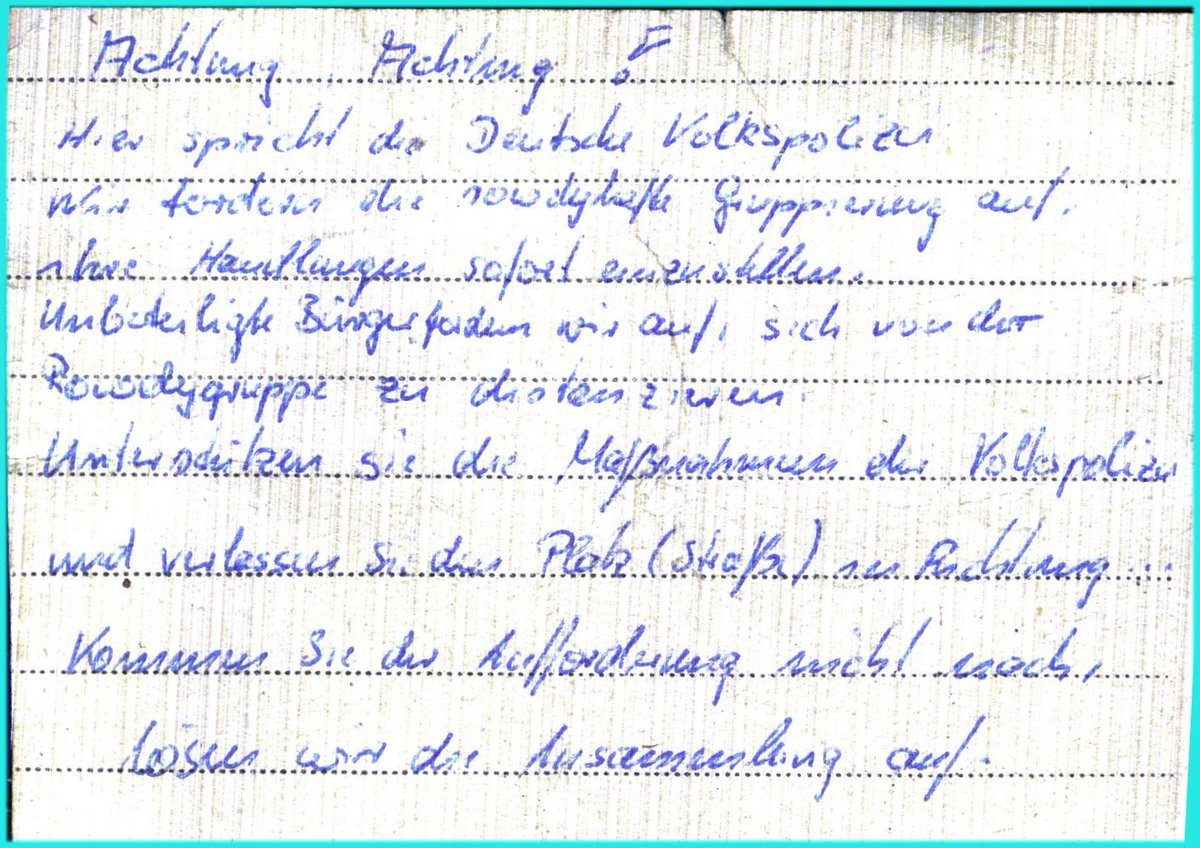 Achtung, Achtung!
Hier spricht die Deutsche Volkspolizei
Wir fordern die rowdyhafte Gruppierung auf,
ihre Handlungen sofort einzustellen.
Unbeteiligte Bürger fordern wir auf, sich von der
Rowdygruppe zu distanzieren.
Unterstützen sie die Maßnahmen der Volkspolizei
und verlassen Sie den Platz (Straße) in Richtung ...
Kommen Sie der Aufforderung nicht nach,
lösen wir die Ansammlung auf.